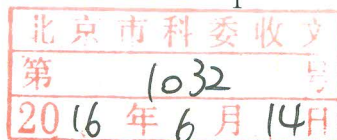 北京市科委收文
第1032号
2016年6月14日